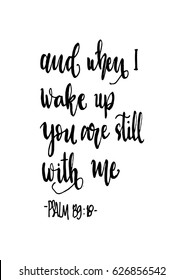 and when I
wake up
you are still
with me
-PSALM 139:18-
shutterstock.com · 626856542